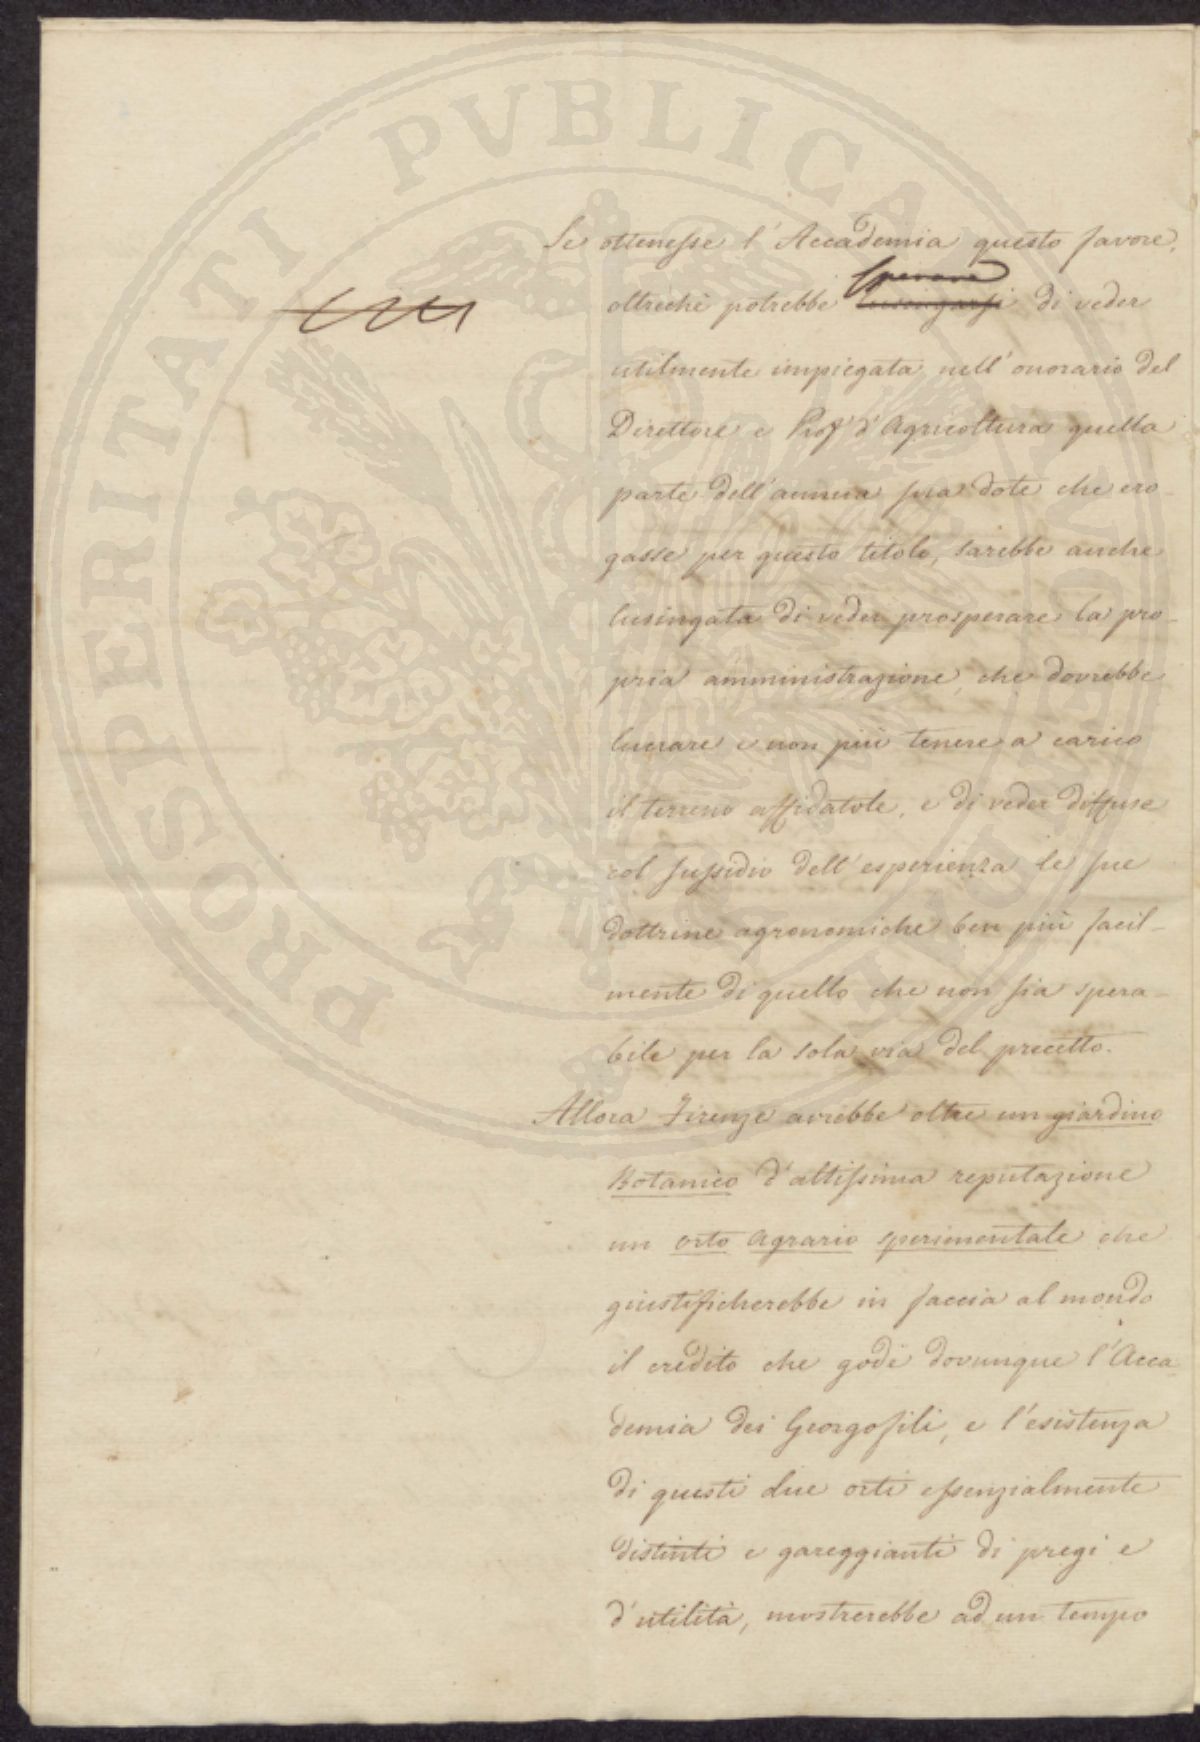 Se ottenesse l'Accademia questo favore,
sperare
oltrechè potrebbe lusingarsi di veder
utilmente impiegata nell'onorario del
Direttore e Prof. d'Agricoltura quella
parte dell'annua sua dote che ero-
gasse per questo titolo, sarebbe anche
lusingata di veder prosperare la pro-
pria amministrazione, che dovrebbe
lucrare e non più tenere a carico
il terreno affidatole, e di veder diffuse
col sussidio dell'esperienza le sue
dottrine agronomiche ben più facil-
mente di quello che non sia spera-
bile per la sola via del precetto.
Allora Firenze avrebbe oltre un giardino
Botanico d'altissima reputazione
un orto Agrario sperimentale che
giustificherebbe in faccia al mondo
il credito che gode dovunque l'Acca-
demia dei Georgofili, e l'esistenza
di questi due orti essenzialmente
distinti e gareggianti di pregi e
d'utilità, mostrerebbe ad un tempo
PROSPERITATI PUBLICAE